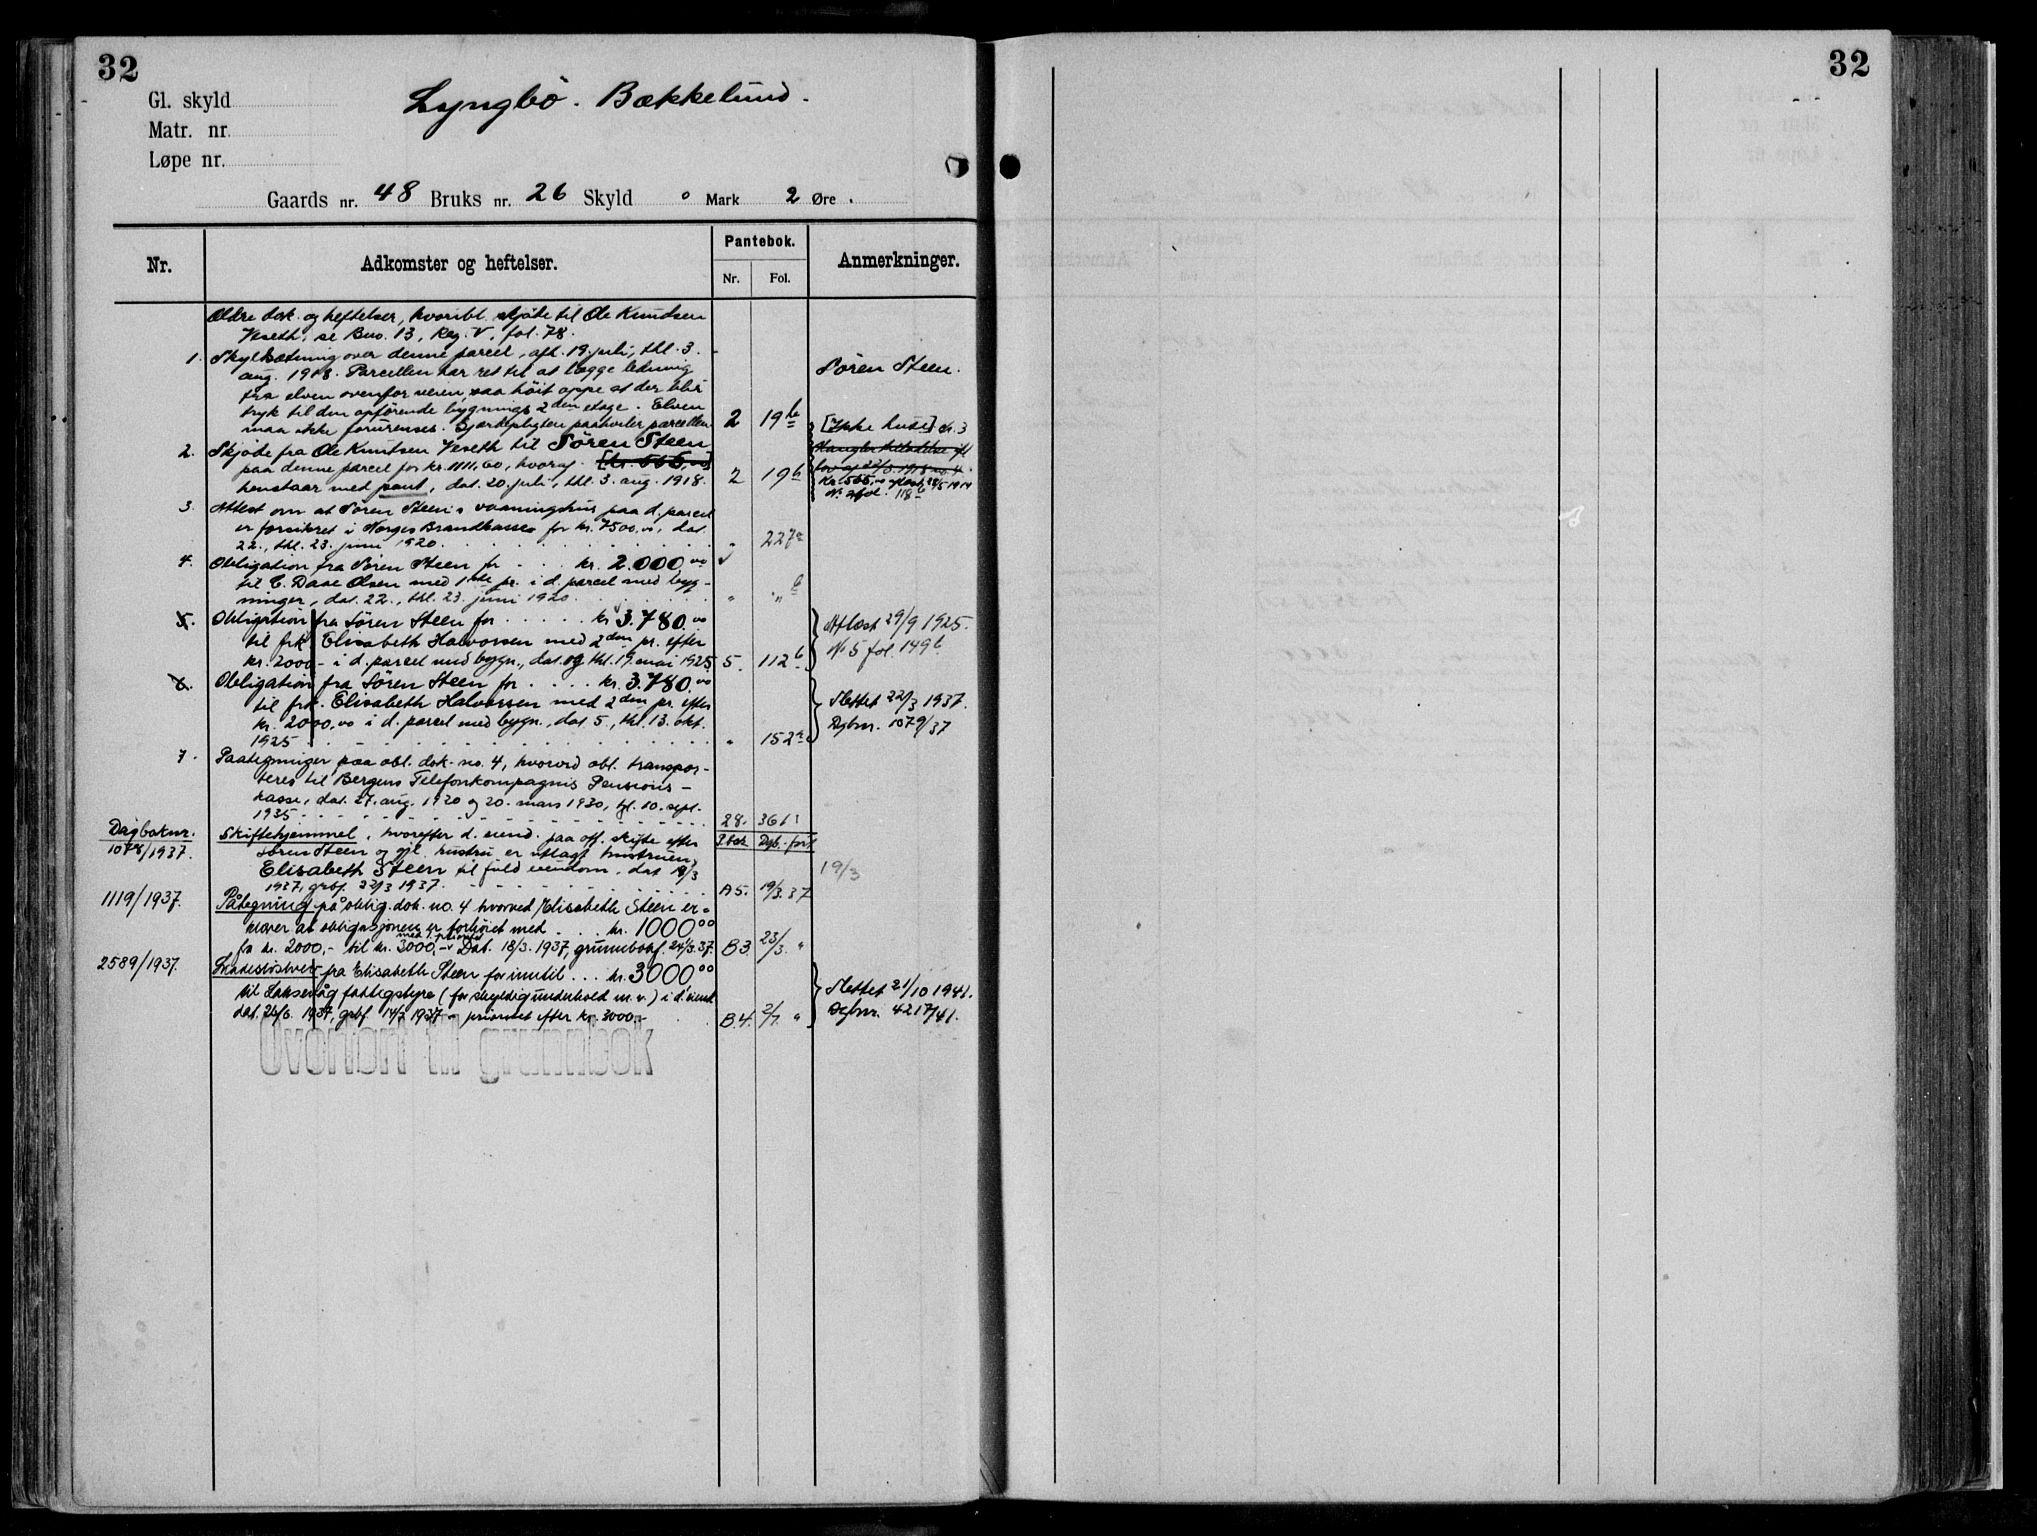 32
Gl. skyld
Matr. nr.
Løpe nr.
Lyngbö. Bækkelund.
Gaards nr. 48 Bruks nr. 26 Skyld 0 Mark 2 Øre.
Nr. Adkomster og heftelser. Pantebok. Anmerkninger.
Nr. Fol.
Ældre dok. og heftelser, hvoribl. skjöte til Ole Knudsen
Veseth, se Bus. 13, Reg. V, fol. 78.
1. Skyldsætning over denne parcel, afh. 19. juli, thl. 3.
aug. 1918. Parcellen har ret til at lægge ledning
fra elven ovenfor veien, saa höit oppe at der blir
tryk til den opförende bygnings 2den etage. Elven
maa ikke forurenses. Gjærdepligten paahviler parcellen 2 19b
Sören Steen.
2. Skjöde fra Ole Knutsen Veseth til Sören Steen
paa denne parcel for kr. 1111,60, hvoraf [kr. 555,00]
henstaar med pant, dat. 20. juli, thl. 3. aug. 1918. 2 19b
[Ikke huse] d. 3
Mangler tilladelse ifl.
lov af 22/3 1918 no. 4.
Kr. 555,00 aflæst 28/5 1919
N. 2 fol. 118b
3. Attest om at Sören Steens vaaningshus paa d. parcel
er forsikret i Norges Brandkasse for kr. 7500,00, dat.
22., thl. 23. juni 1920. " 227a
4. Obligation fra Sören Steen for kr. 2.000,00
til C. Dase Olsen med 1ste pr. i d. parcel med byg-
ninger, dat. 22., thl. 23. juni 1920. " " b
5. Obligation fra Sören Steen for kr. 3.780,00
til frk. Elisabeth Halvorsen med 2den pr. efter
kr. 2000,- i d. parcel med bygn., dat. og thl. 19. mai 1925 5. 112b
Aflæst 29/9 1925.
N. 5 fol. 149b
6. Obligation fra Sören Steen for kr. 3.780,00
til frk. Elisabeth Halvorsen med 2den pr. efter
kr. 2000,00 i d. parcel med bygn., dat. 5., thl. 13. okt.
1925 " 152a
Slettet 22/3 1937.
Dgbnr. 1079/37
7. Paategninger paa obl. dok. no. 4, hvorved obl. transpor-
teres til Bergens Telefonkompagnis Pensions-
kasse, dat. 27. aug. 1920 og 20. mars 1930, tgl. 10. sept.
1935 28. 361
Dagboknr. P.bok Dgb.-ført
1078/1937. Skiftehjemmel, hvorefter d. eiend. paa off. skifte efter
Sören Steen og gjl. hustru er utlagt hustruen,
Elisabeth Steen til fuld eiendom, dat. 18/3
1937, grbf. 22/3 1937. A5. 19/3.37
19/3
1119/1937. Påtegning på oblig. dok. no. 4 hvorved Elisabeth Steen er-
klærer at obligasjonen er forhöiet med kr. 1000,00
fra kr. 2000,- til kr. 3000,- med 1. prioritet Dat. 18/3. 1937, grunnbokf. 24/3.37. B3. 23/3. "
2589/1937. Skadeslösbrev fra Elisabeth Steen for inntil kr. 3000,00
til Laksevåg fattigstyre (for skyldig underhold m.v.) i d. eiend.
dat. 26/6. 1937, grbf. 14/7 1937 - prioritet efter kr. 3000.- B.4. 2/7. "
Slettet 21/10 1941.
Dgbnr. 4217/41.
Overført til grunnbok
32